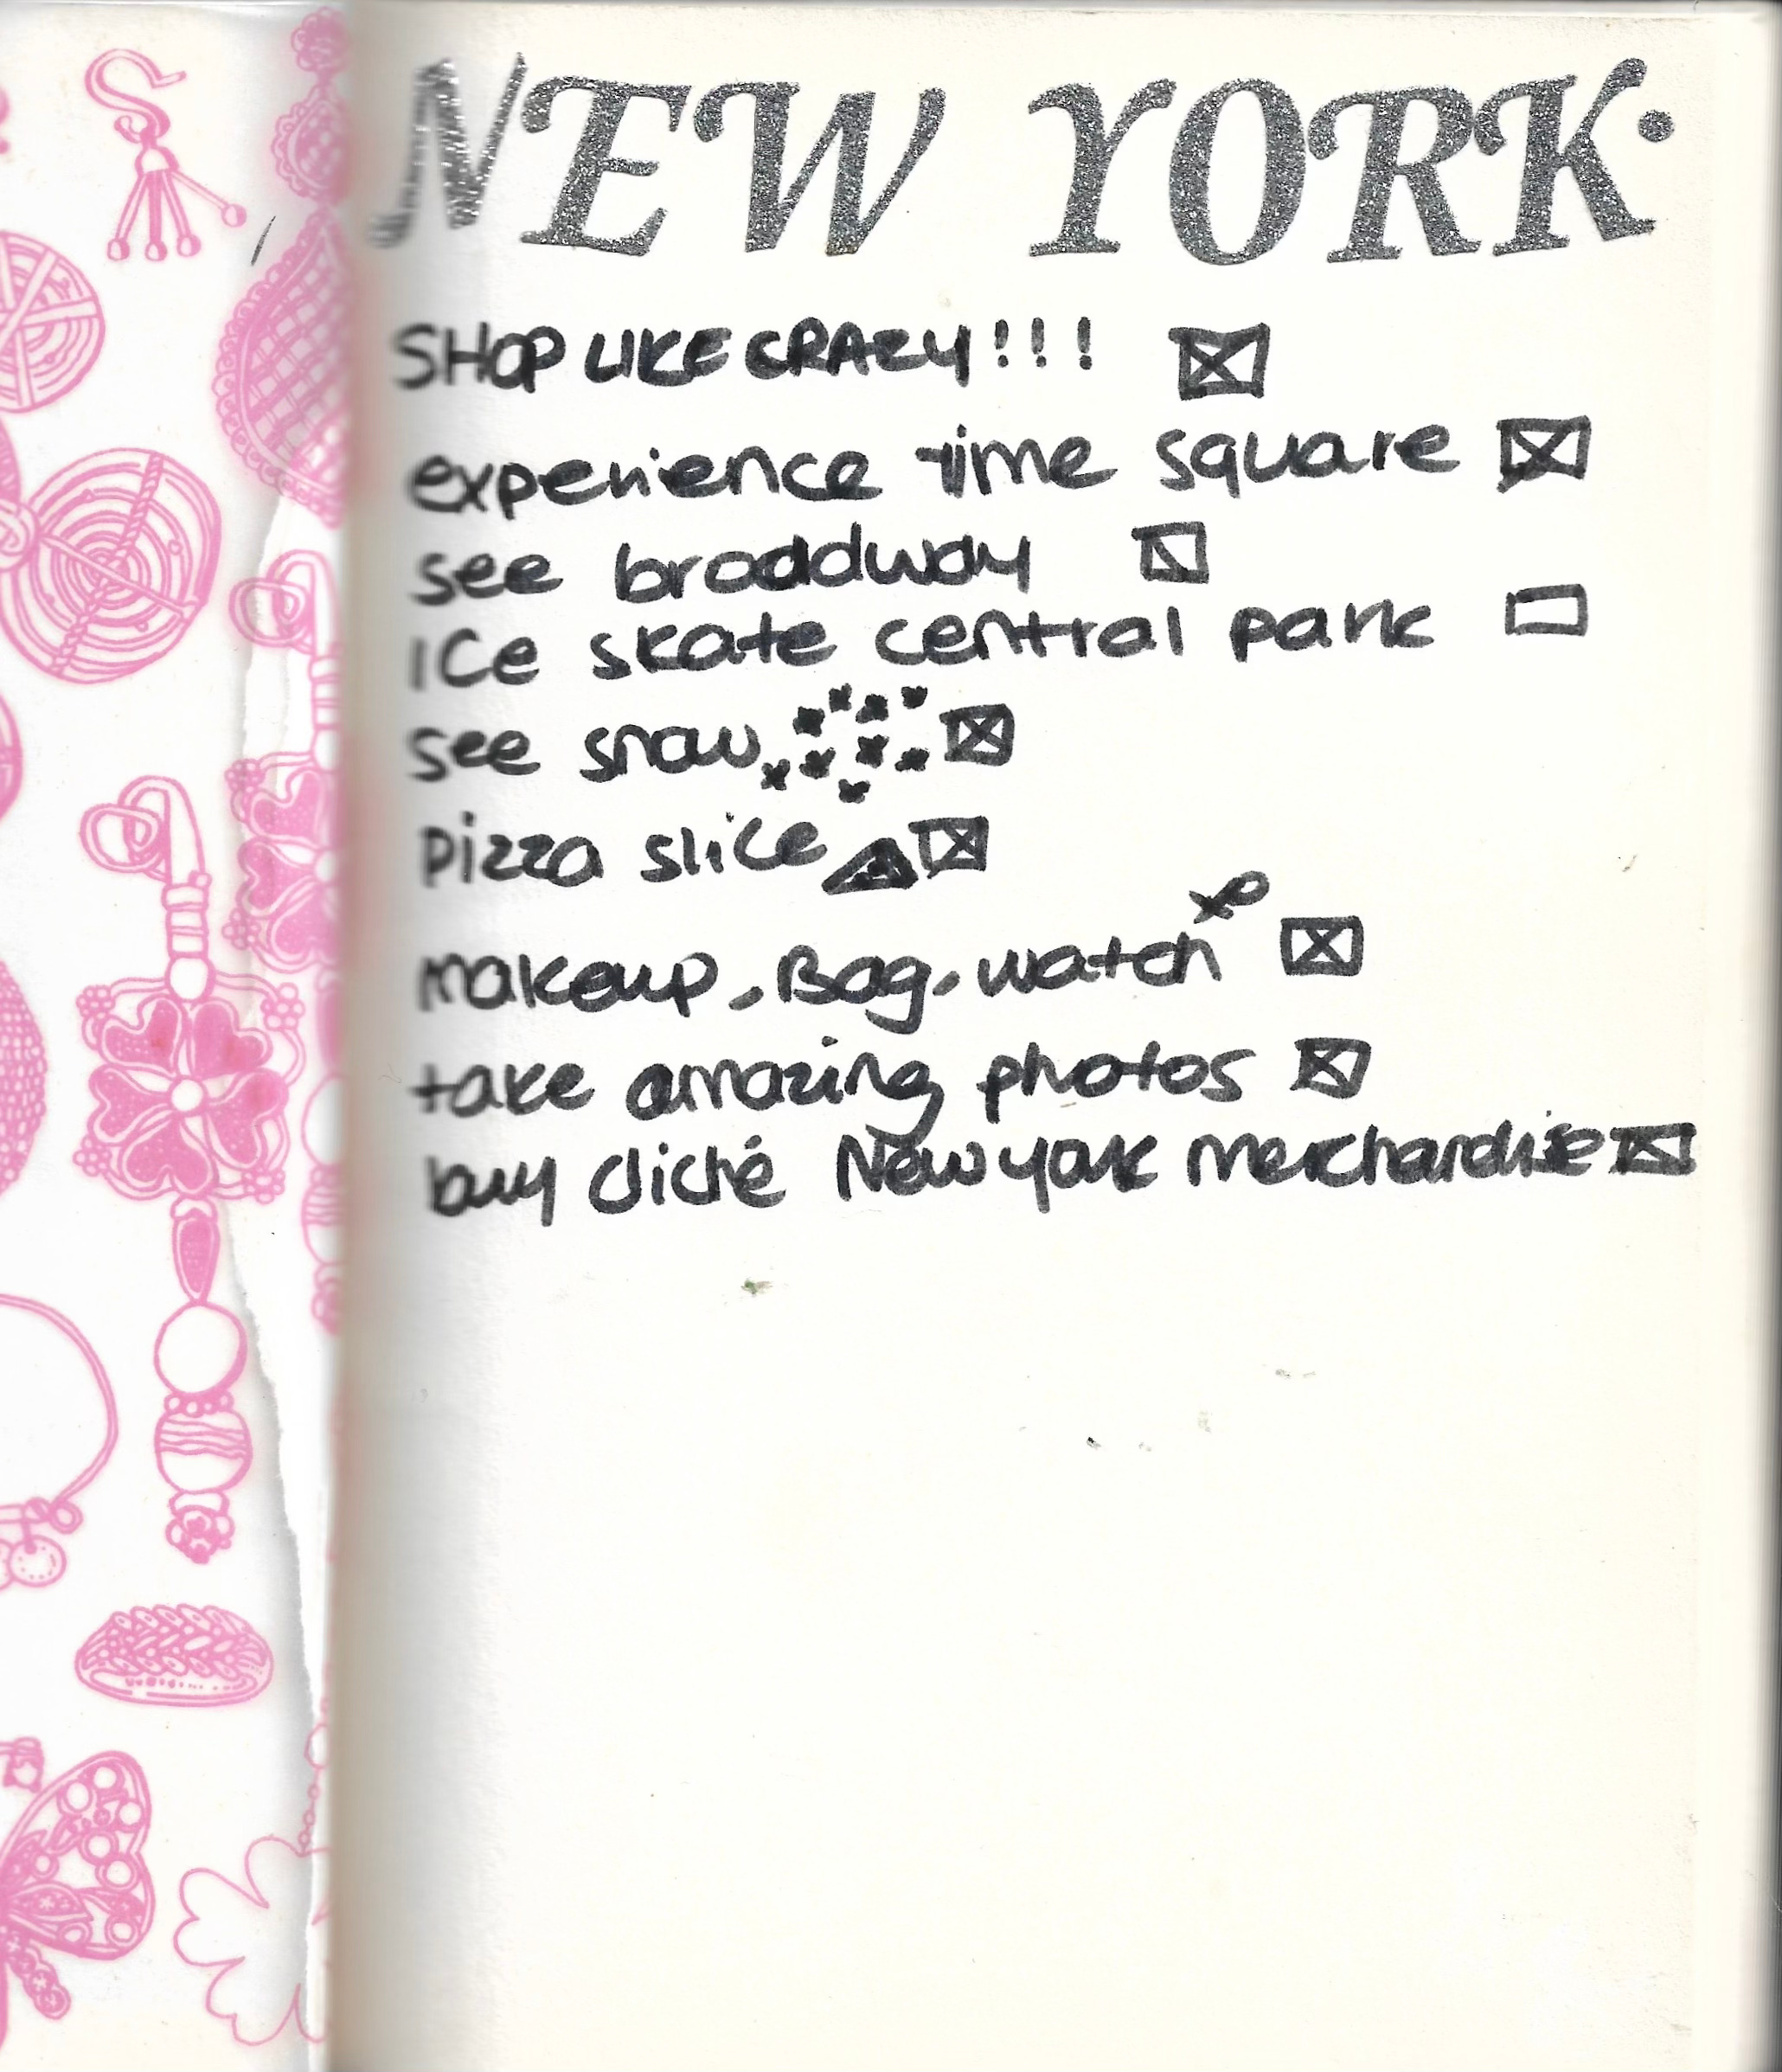 NEW YORK.
SHOP LIKE CRAZY!!!
experience time square
see broadway
ice skate central park
see snow
pizza slice
makeup, Bag, watch
take amazing photos
buy cliché New york merchandise